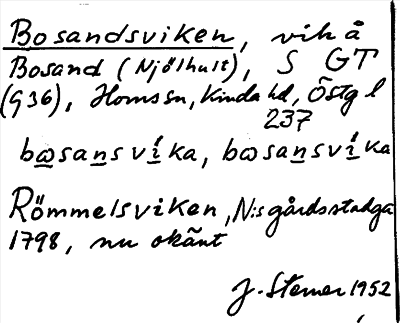 Bosandsviken, vik å
Bosand (Njölhult), S GT
(G36), Horns sn, Kinda hd, Östg l
237
bɷsansvíka, bɷsansvíka
Römmelsviken, N:s gårdsstadga
1798, nu okänt
J. Sterner 1952